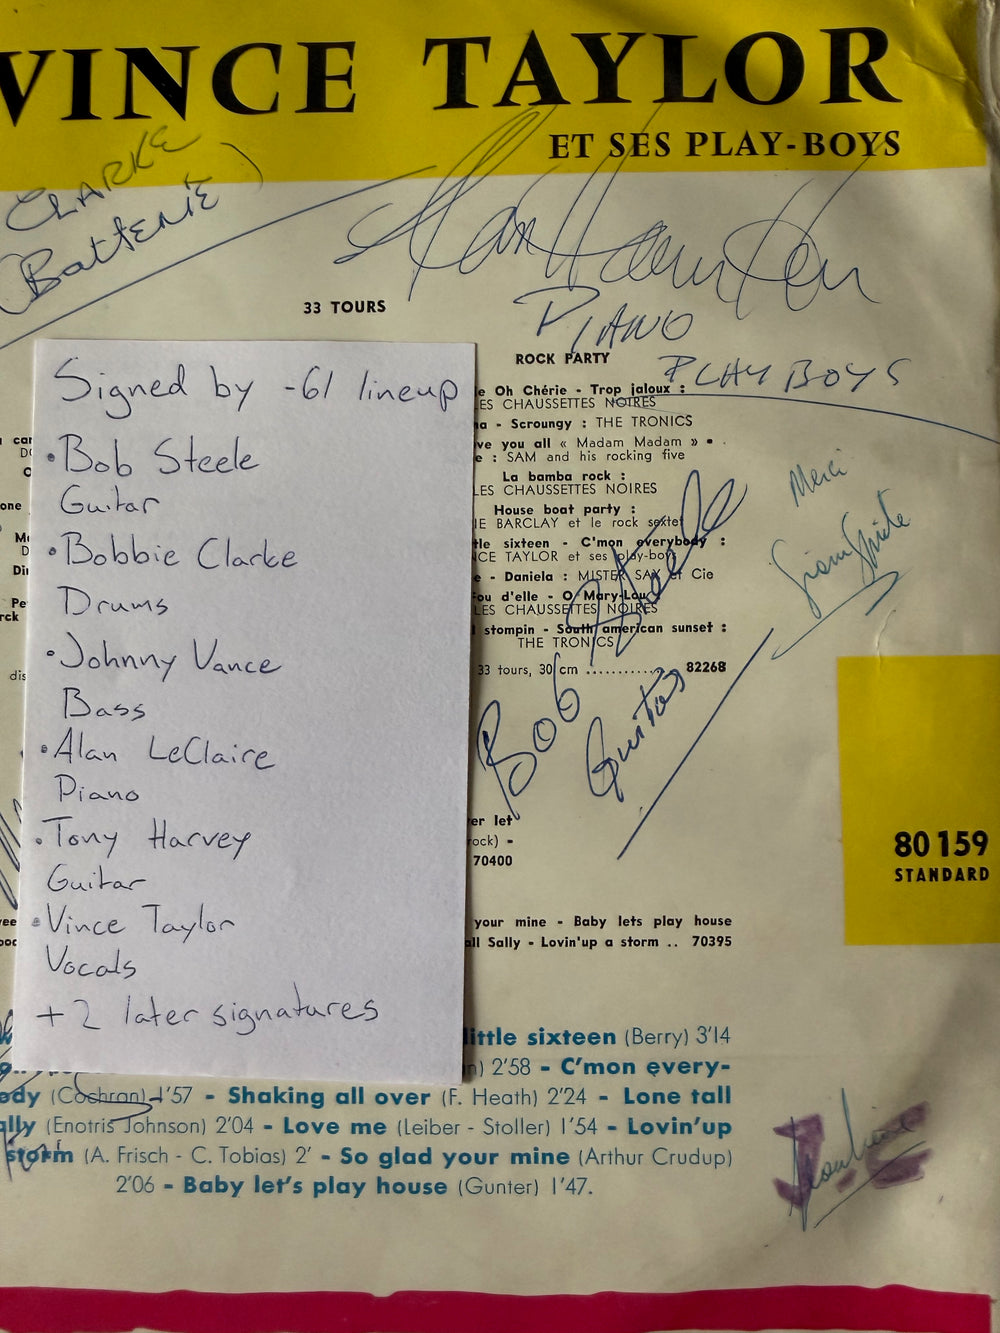 VINCE TAYLOR
ET SES PLAY-BOYS
CLARKE
(Batterie)
33 TOURS
PIANO
PLAY BOYS
ROCK PARTY
Oh Chérie - Trop jaloux :
LES CHAUSSETTES NOIRES
- Scroungy : THE TRONICS
you all « Madam Madam » •
: SAM and his rocking five
La bamba rock :
LES CHAUSSETTES NOIRES
House boat party :
BARCLAY et le rock sextet
sixteen - C'mon everybody :
TAYLOR et ses play-boys
- Daniela : MISTER SAX et Cie
d'elle - O Mary-Lou
LES CHAUSSETTES NOIRES
stompin - South american sunset :
THE TRONICS
33 tours, 30 cm ............ 82268
Merci
Bob Steele
Guitar
Signed by -61 lineup
•Bob Steele
Guitar
•Bobbie Clarke
Drums
•Johnny Vance
Bass
•Alan LeClaire
Piano
•Tony Harvey
Guitar
•Vince Taylor
Vocals
+2 later signatures
70400
80 159
STANDARD
your mine - Baby lets play house
Sally - Lovin'up a storm .. 70395
little sixteen (Berry) 3'14
2'58 - C'mon every-
(Cochran) 1'57 - Shaking all over (F. Heath) 2'24 - Lone tall
(Enotris Johnson) 2'04 - Love me (Leiber - Stoller) 1'54 - Lovin'up
storm (A. Frisch - C. Tobias) 2' - So glad your mine (Arthur Crudup)
2'06 - Baby let's play house (Gunter) 1'47.